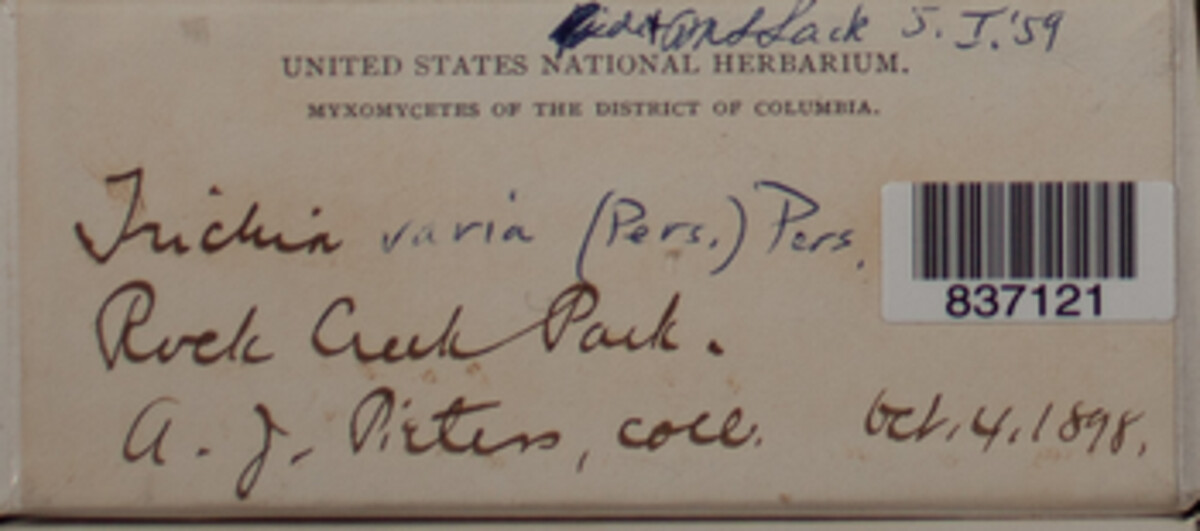 Lack 5.I.'59
UNITED STATES NATIONAL HERBARIUM.
MYXOMYCETES OF THE DISTRICT OF COLUMBIA.
Trichia varia (Pers.) Pers.
837121
Rock Creek Park.
A. J. Pieters, coll. Oct. 4. 1898.